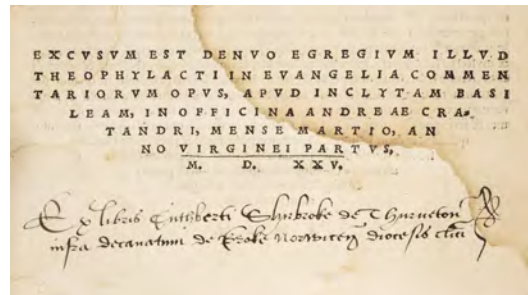 EXCVSVM EST DENVO EGREGIVM ILLVD
THEOPHYLACTI IN EVANGELIA COMMEN
TARIORVM OPVS, APVD INCLYTAM BASI
LEAM, IN OFFICINA ANDREAE CRA-
TANDRI, MENSE MARTIO, AN
NO VIRGINEI PARTVS,
M. D. XXV.
Ex libris Cuthberti Shirbroke de Thurueton
infra decanatum de Broke Norwicen diocesis